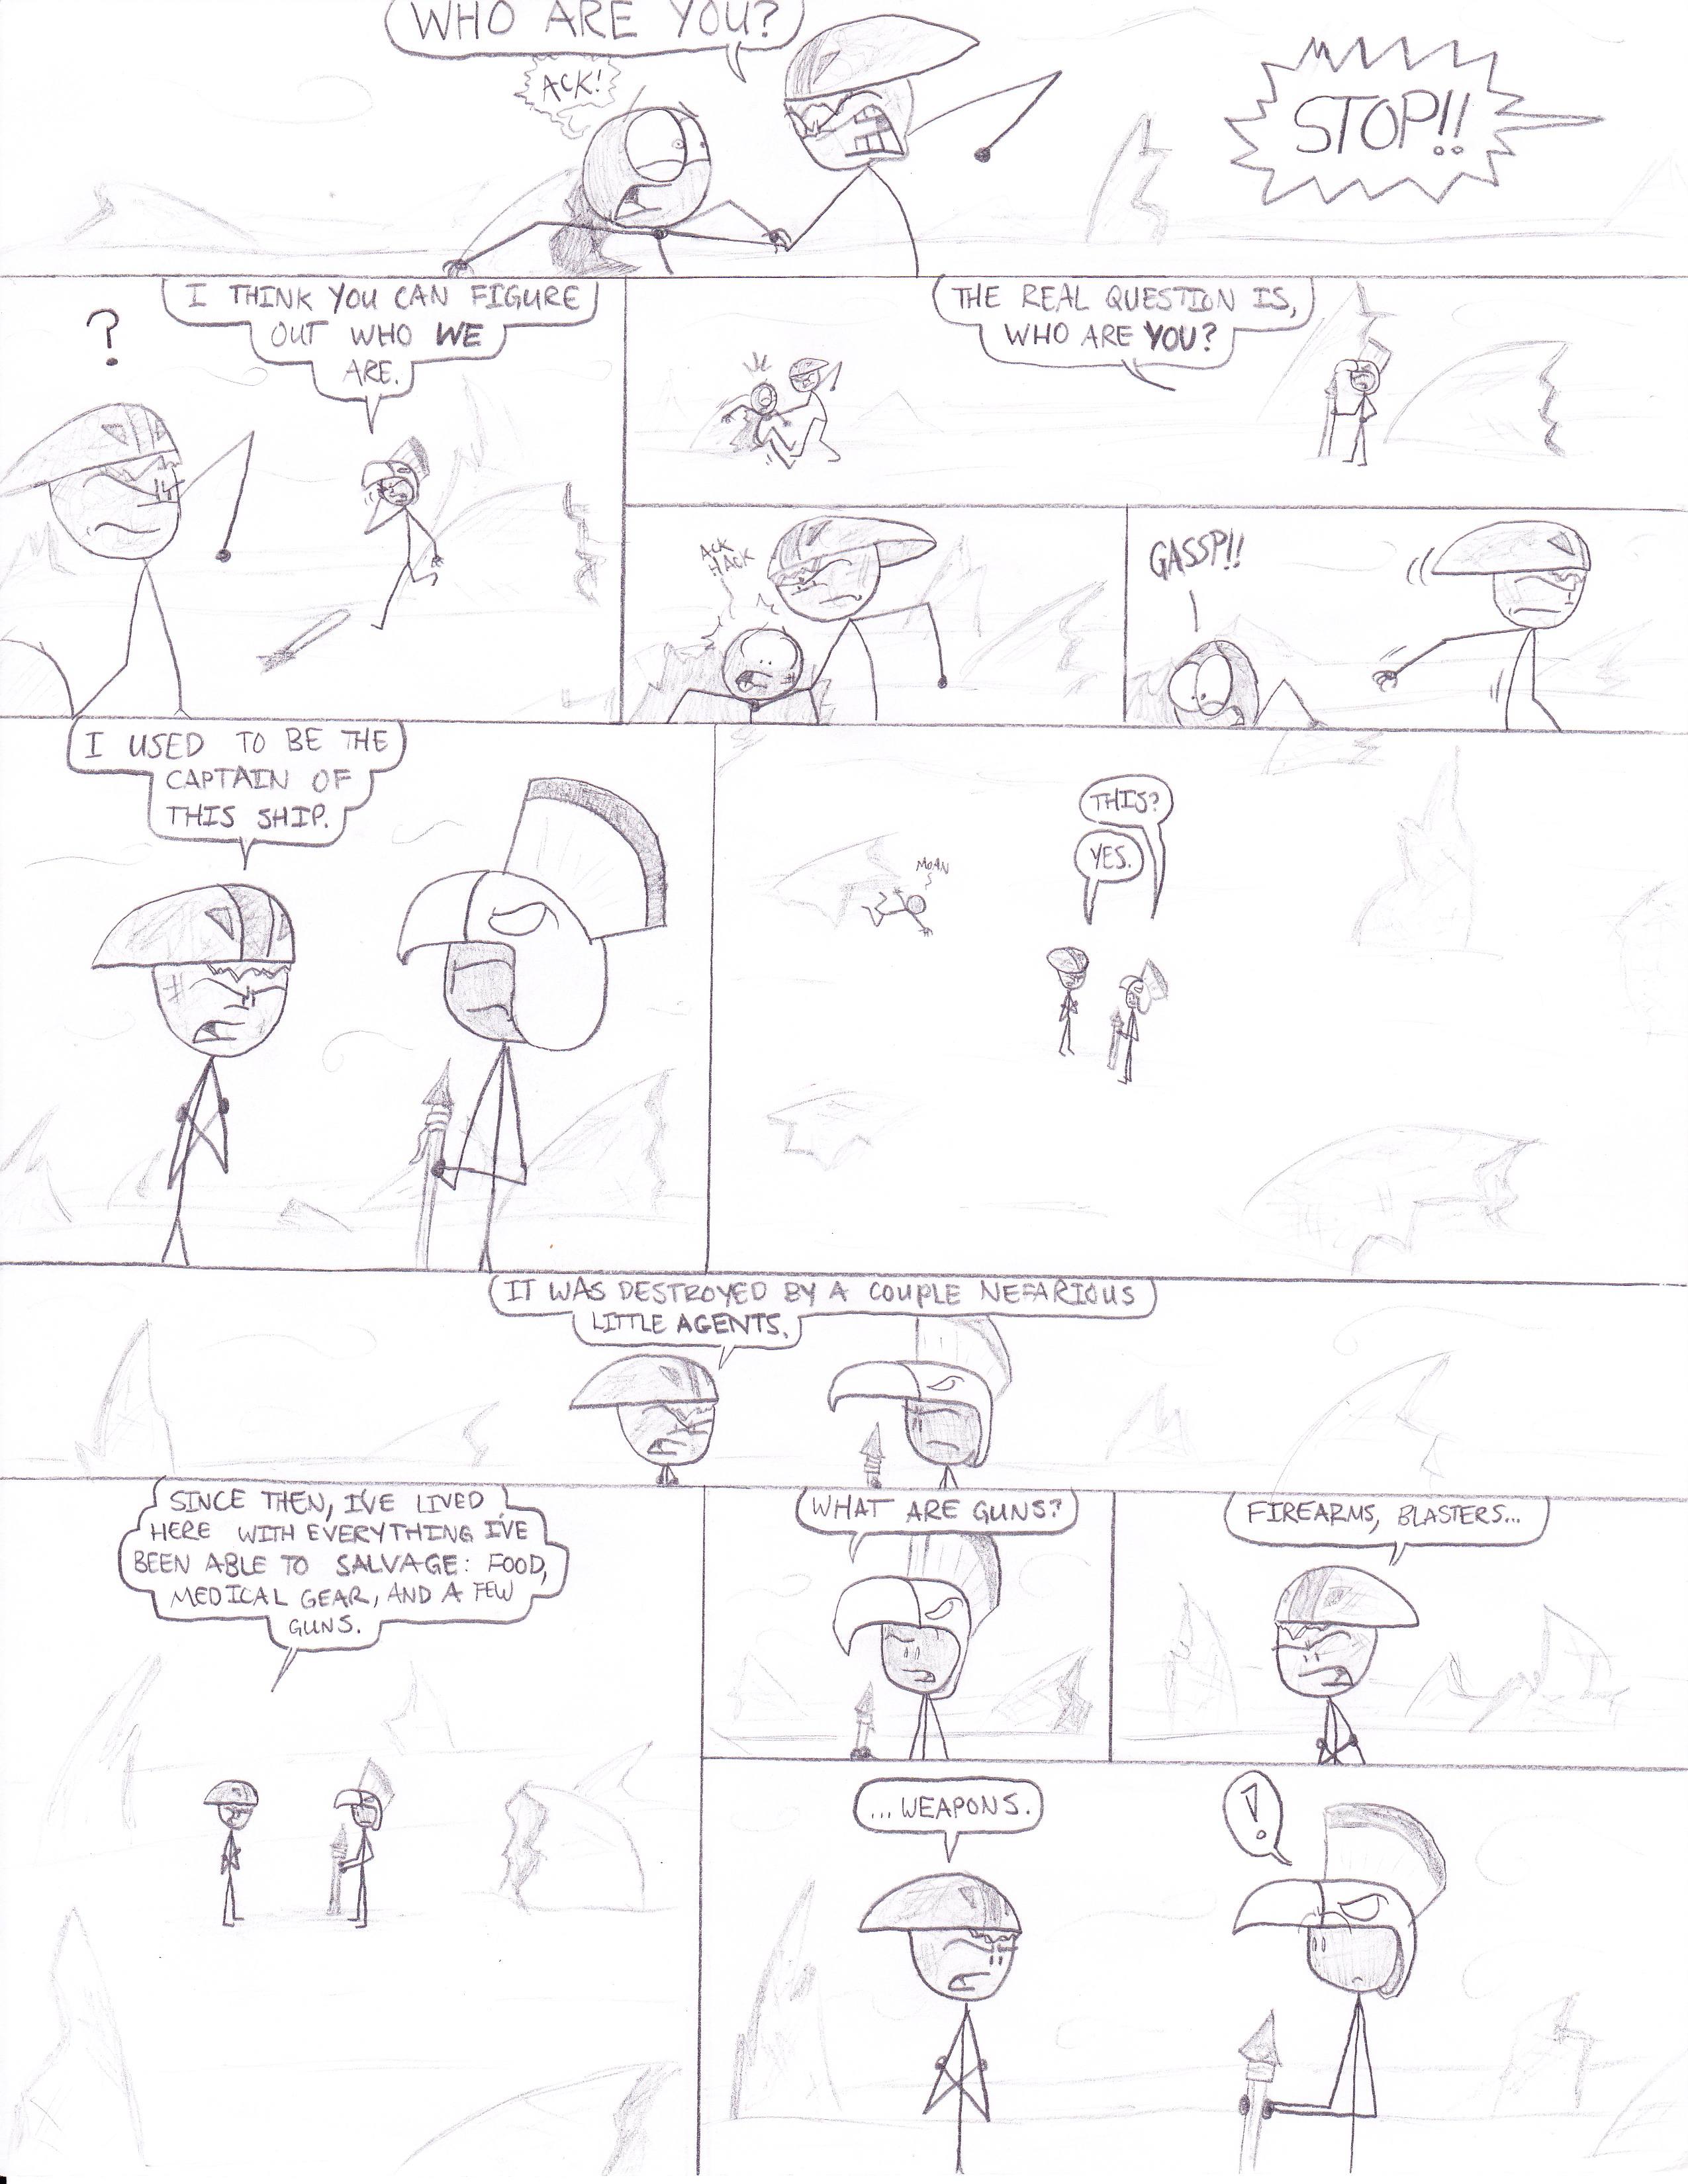 WHO ARE YOU?
ACK!
STOP!!
?
I THINK YOU CAN FIGURE
OUT WHO WE
ARE.
THE REAL QUESTION IS,
WHO ARE YOU?
ACK
HACK
GASSP!!
I USED TO BE THE
CAPTAIN OF
THIS SHIP.
THIS?
YES.
MOAN
IT WAS DESTROYED BY A COUPLE NEFARIOUS
LITTLE AGENTS.
SINCE THEN, I'VE LIVED
HERE WITH EVERYTHING I'VE
BEEN ABLE TO SALVAGE: FOOD,
MEDICAL GEAR, AND A FEW
GUNS.
WHAT ARE GUNS?
FIREARMS, BLASTERS...
...WEAPONS.
!